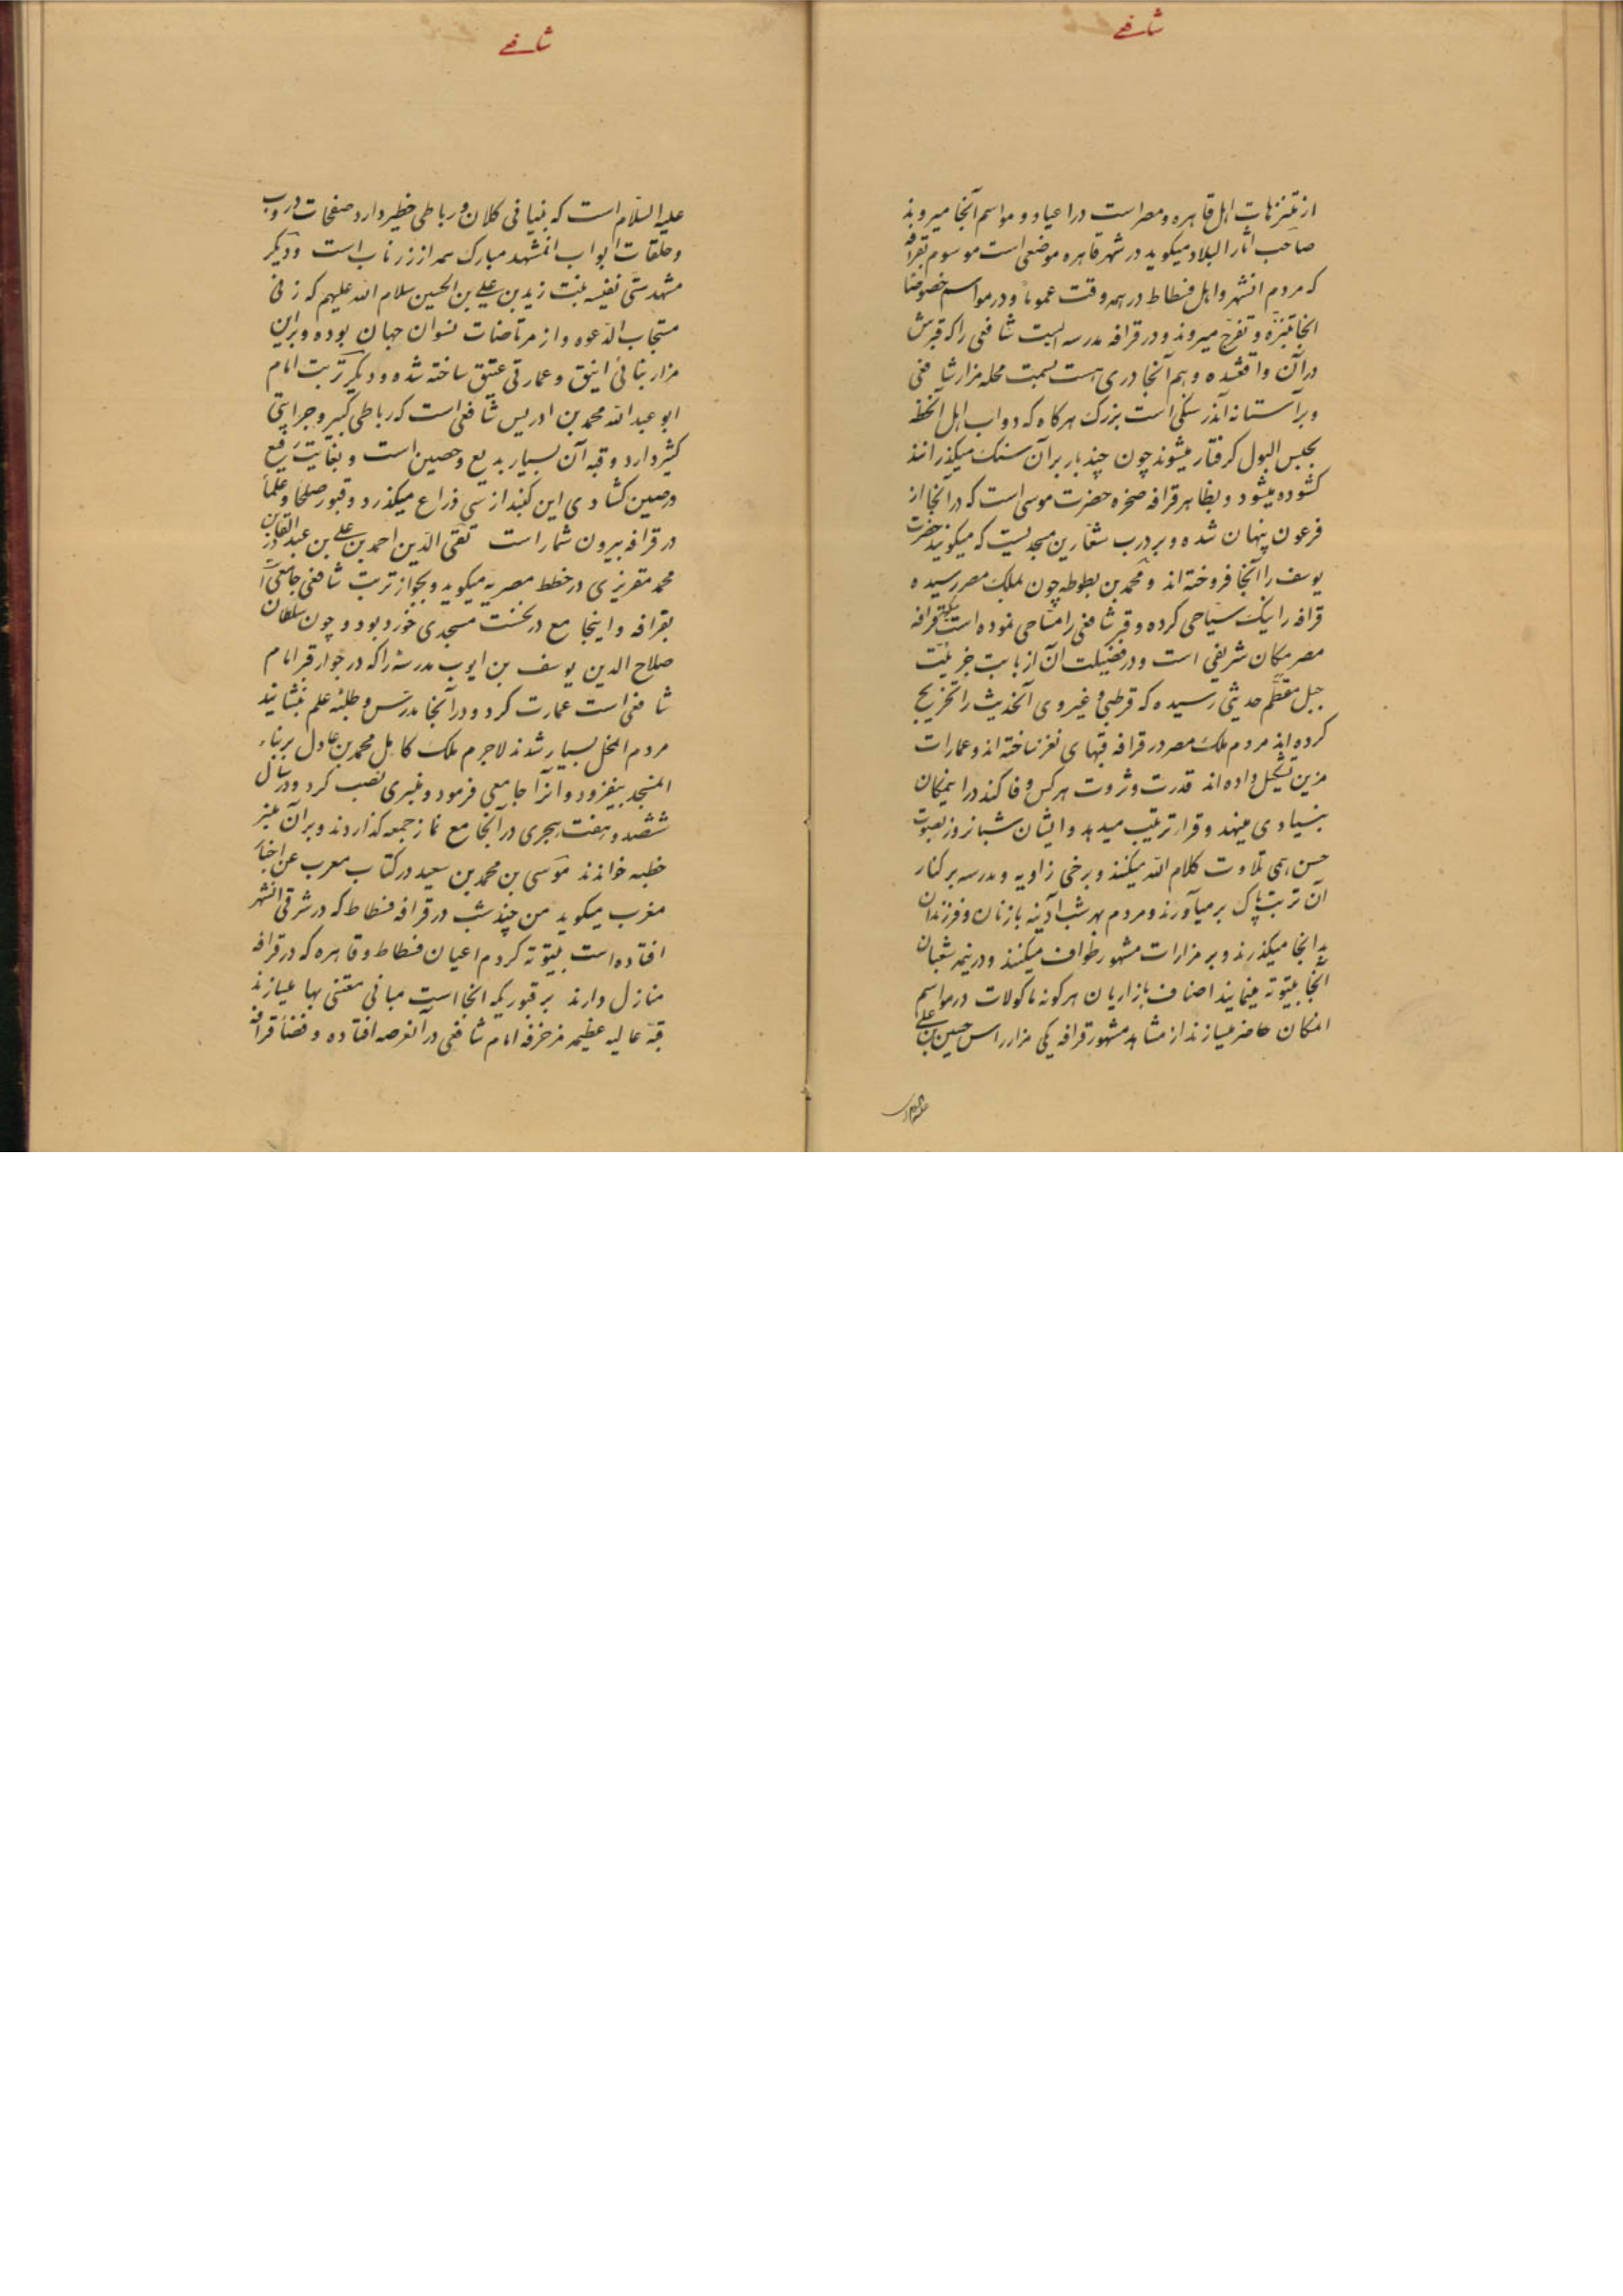 شافعے
از متنزهات اهل قاهره و مصر است در اعیاد و مواسم آنجا میروند
صاحب آثار البلاد میکوید در شهر قاهره موضعی است موسوم بقرافه
که مردم انشهر و اهل فسطاط در همه وقت عموماً و در مواسم خصوصاً
انجا بتنزه و تفرج میروند و در قرافه مدرسه ایست شافعی را که قبرش
در آن واقعشده و هم آنجا دری هست بسمت محله مزار شافعی
و بر آستانه آندر سنکی است بزرک هرکاه که دواب اهل انخطه
بحبس البول کرفتار میشوند چون چند بار بر آن سنک میکذرانند
کشوده میشود و بظاهر قرافه صخره حضرت موسی است که در آنجا از
فرعون پنهان شده و بر درب شعارین مسجدیست که میکویند حضرت
یوسف را آنجا فروخته اند و محمد بن بطوطه چون بملک مصر رسیده
قرافه را نیک سیاحی کرده و قبر شافعی را مساحی نموده است میکوید قرافه
مصر مکان شریفی است و در فضیلت آن از بابت جزئیت
جبل مقطم حدیثی رسیده که قرطبی و غیر وی آنحدیث را تخریج
کرده اند مردم ملک مصر در قرافه قبهای نغز ساخته اند و عمارات
مزین تشکیل داده اند قدرت و ثروت هرکس وفا کند در اینمکان
بنیادی مینهد و قراء ترتیب میدهد و ایشان شبانروز بصوت
حسن همی تلاوت کلام الله میکنند و برخی زاویه و مدرسه بر کنار
آن تربت پاک بر میآورند و مردم بهر شب آدینه با زنان و فرزندان
بدانجا میکذرند و بر مزارات مشهور طواف میکنند و در نیمه شعبان
آنجا بیتوته مینمایند اصناف بازاریان هرکونه ماکولات در مواسم
انمکان حاضر میسازند از مشاهد مشهور قرافه یکی مزار راس حسین بن علی
علیه السلام
شافعے
علیه السلام است که بنیانی کلان و رباطی خطیر دارد صفحات دروب
و حلقات ابواب انمشهد مبارک همه از زر ناب است و دیکر
مشهد ستی نفیسه بنت زید بن علی بن الحسین سلام الله علیهم که زنی
مستجاب الدعوه و از مرتاضات نسوان جهان بوده و بر این
مزار بنائی انیق و عمارتی عتیق ساخته شده و دیکر تربت امام
ابو عبد الله محمد بن ادریس شافعی است که رباطی کبیر و جرایتی
کثیر دارد و قبه آن بسیار بدیع و حصین است و بغایت رفیع
و رصین کشادی این کنبد از سی ذراع میکذرد و قبور صلحا و علماء
در قرافه بیرون شمار است تقی الدین احمد بن علی بن عبد القادر بن
محمد مقریزی در خطط مصریه میکوید و بجواز تربت شافعی جامعی است
بقرافه و اینجامع در نخست مسجدی خورد بود و چون سلطان
صلاح الدین یوسف بن ایوب مدرسهٔ را که در جوار قبر امام
شافعی است عمارت کرد و در آنجا مدرس و طلبهٔ علم بنشانید
مردم انمحل بسیار شدند لاجرم ملک کامل محمد بن عادل بر بناء
انمسجد بیفزود و آنرا جامعی فرمود و منبری نصب کرد و در سال
ششصد و هفت هجری در آنجامع نماز جمعه کذاردند و بر آن منبر
خطبه خواندند موسی بن محمد بن سعید در کتاب معرب عن اخبار
مغرب میکوید من چند شب در قرافه فسطاط که در شرقی انشهر
افتاده است بیتوته کردم اعیان فسطاط و قاهره که در قرافه
منازل دارند بر قوریکه انجا است مبانی معتنی بها میسازند
قبهٔ عالیه عظیمه مزخرفه امام شافعی در آنعرصه افتاده و فضاء قرافه